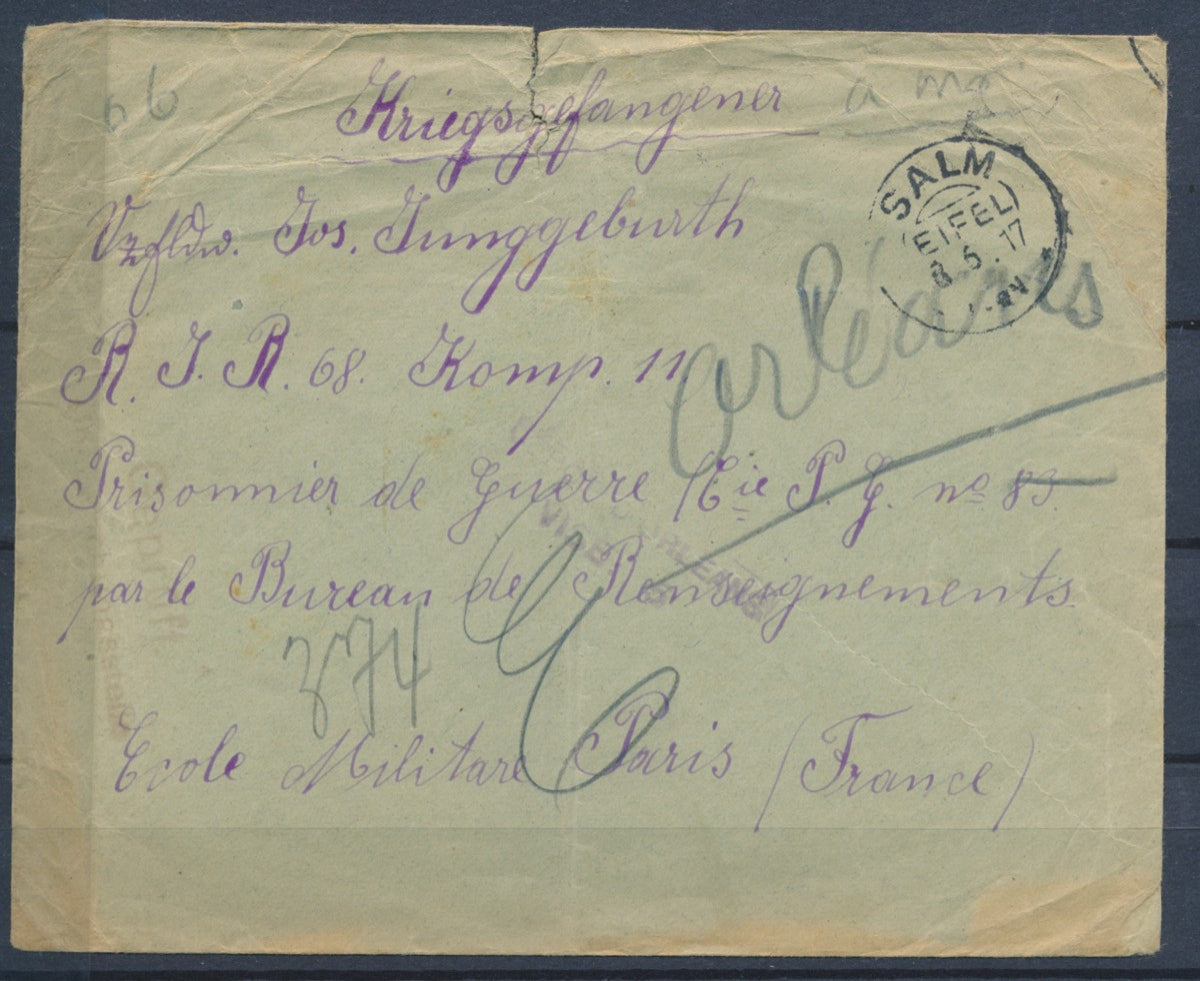 Kriegsgefangener
Vzfldw. Jos. Junggeburth
SALM
(EIFEL)
8.5.17
orléans
R. J. R. 68. Komp. 11
Prisonnier de Guerre /Cie P. G. no 83
par le Bureau de Renseignements
374
Ecole Militare Paris (France)